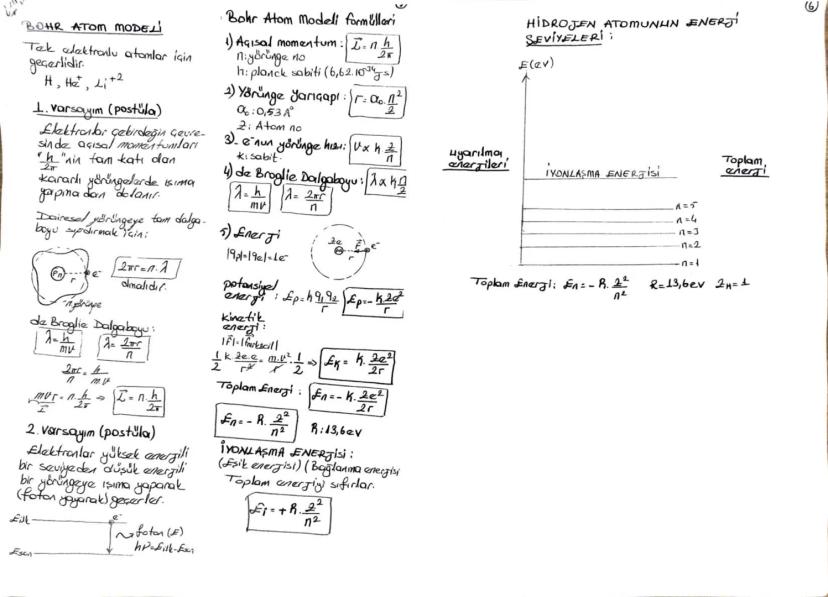 BOHR ATOM MODELİ
Tek elektronlu atomlar için
geçerlidir.
H, He⁺, Li⁺²
1. varsayım (postüla)
Elektronlar çekirdeğin çevre-
sinde açısal momentumları
"h/2π" nin tam katı olan
kararlı yörüngelerde ışıma
yapmadan dolanır.
Dairesel yörüngeye tam dalga-
boyu sığdırmak için:
2πr = n.λ
e⁻
r
olmalıdır.
n.yörünge
de Broglie Dalgaboyu:
λ = h/mv λ = 2πr/n
2πr/n = h/m.v
mvr = n.h/2π ⇒ L = n.h/2π
2. varsayım (postüla)
Elektronlar yüksek enerjili
bir seviyeden düşük enerjili
bir yörüngeye ışıma yaparak
(foton yayarak) geçerler.
Eilk e⁻
foton (E)
hν = Eilk - Eson
Eson
Bohr Atom Modeli formülleri
1) Açısal momentum: L = n h/2π
n: yörünge no
h: planck sabiti (6,62.10⁻³⁴ Js)
2) Yörünge Yarıçapı: r = a₀.n²/2
a₀: 0,53 A°
Z: Atom no
3) e⁻nun yörünge hızı: V ∝ k 2/n
k: sabit
4) de Broglie Dalgaboyu: λ ∝ k n/2
λ = h/mv λ = 2πr/n
5) Enerji
|qp| = |qe| = 1e⁻
2e F e⁻
r
potansiyel
enerji: Ep = k q1.q2/r Ep = - k.2e²/r
kinetik
enerji:
|F| = |Fmerkezcil|
1/2 k.2e.e/r² = m.v²/r . 1/2 ⇒ EK = k.2e²/2r
Toplam Enerji: En = - k.2e²/2r
En = - R.2²/n² R: 13,6 eV
İYONLAŞMA ENERJİSİ:
(Eşik enerjisi) (Bağlanma enerjisi
Toplam enerjiyi sıfırlar.
Eİ = + R.2²/n²
6
HİDROJEN ATOMUNUN ENERJİ
SEVİYELERİ:
E(eV)
uyarılma
enerjileri
İYONLAŞMA ENERJİSİ
Toplam
enerji
n=5
n=4
n=3
n=2
n=1
Toplam Enerji: En = - R.2²/n² R = 13,6 eV 2H = 1